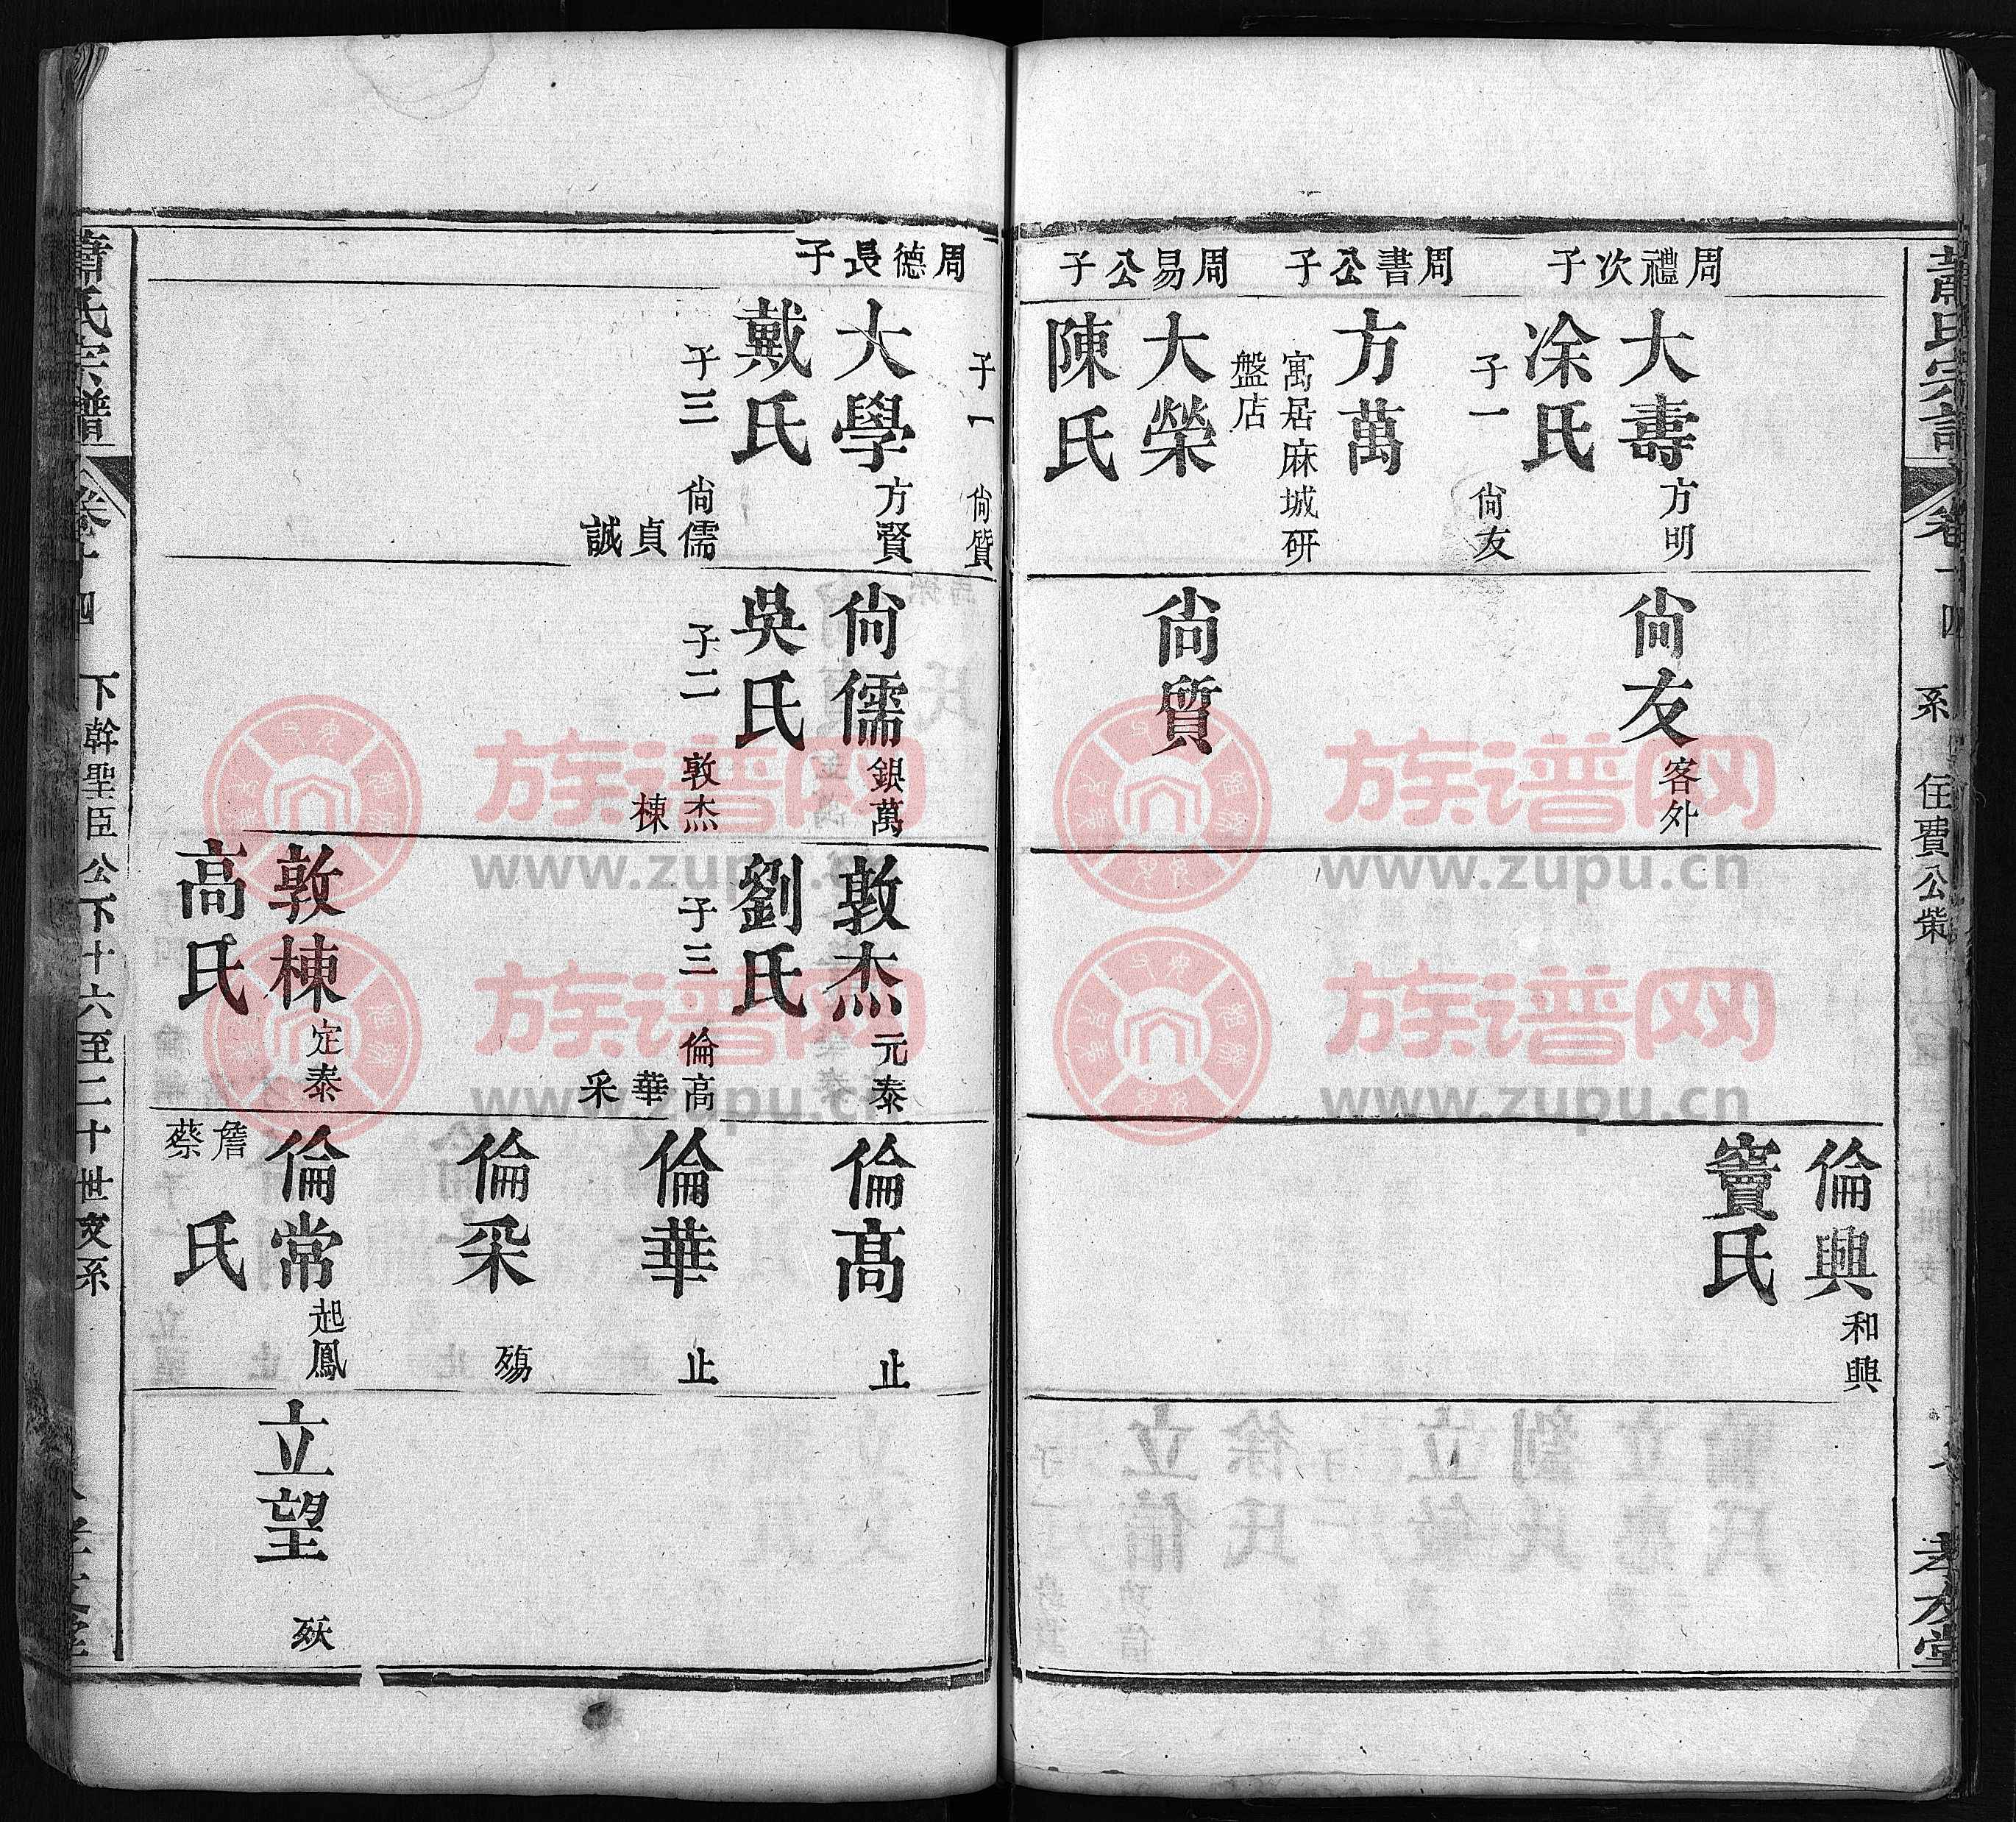 周禮次子
周書公子
周易公子
大壽 方明
凃氏
子一 尙友
方萬
寓居麻城研
盤店
大榮
陳氏
尙友 客外
尙質
倫興 和興
竇氏
孝友堂
周德長子
子一 尙質
大學 方賢
戴氏
子三 尙儒
貞
誠
尙儒 銀萬
吳氏
子二 敦杰
棟
敦杰 元泰
劉氏
子三 倫高
華
采
敦棟 定泰
高氏
倫高 止
倫華 止
倫采 殤
倫常 起鳳
詹
蔡
氏
立望 殀
蕭氏宗譜 卷十四 下幹聖臣公下十六至二十世支系
族谱网
www.zupu.cn
族谱网
www.zupu.cn
族谱网
www.zupu.cn
族谱网
www.zupu.cn